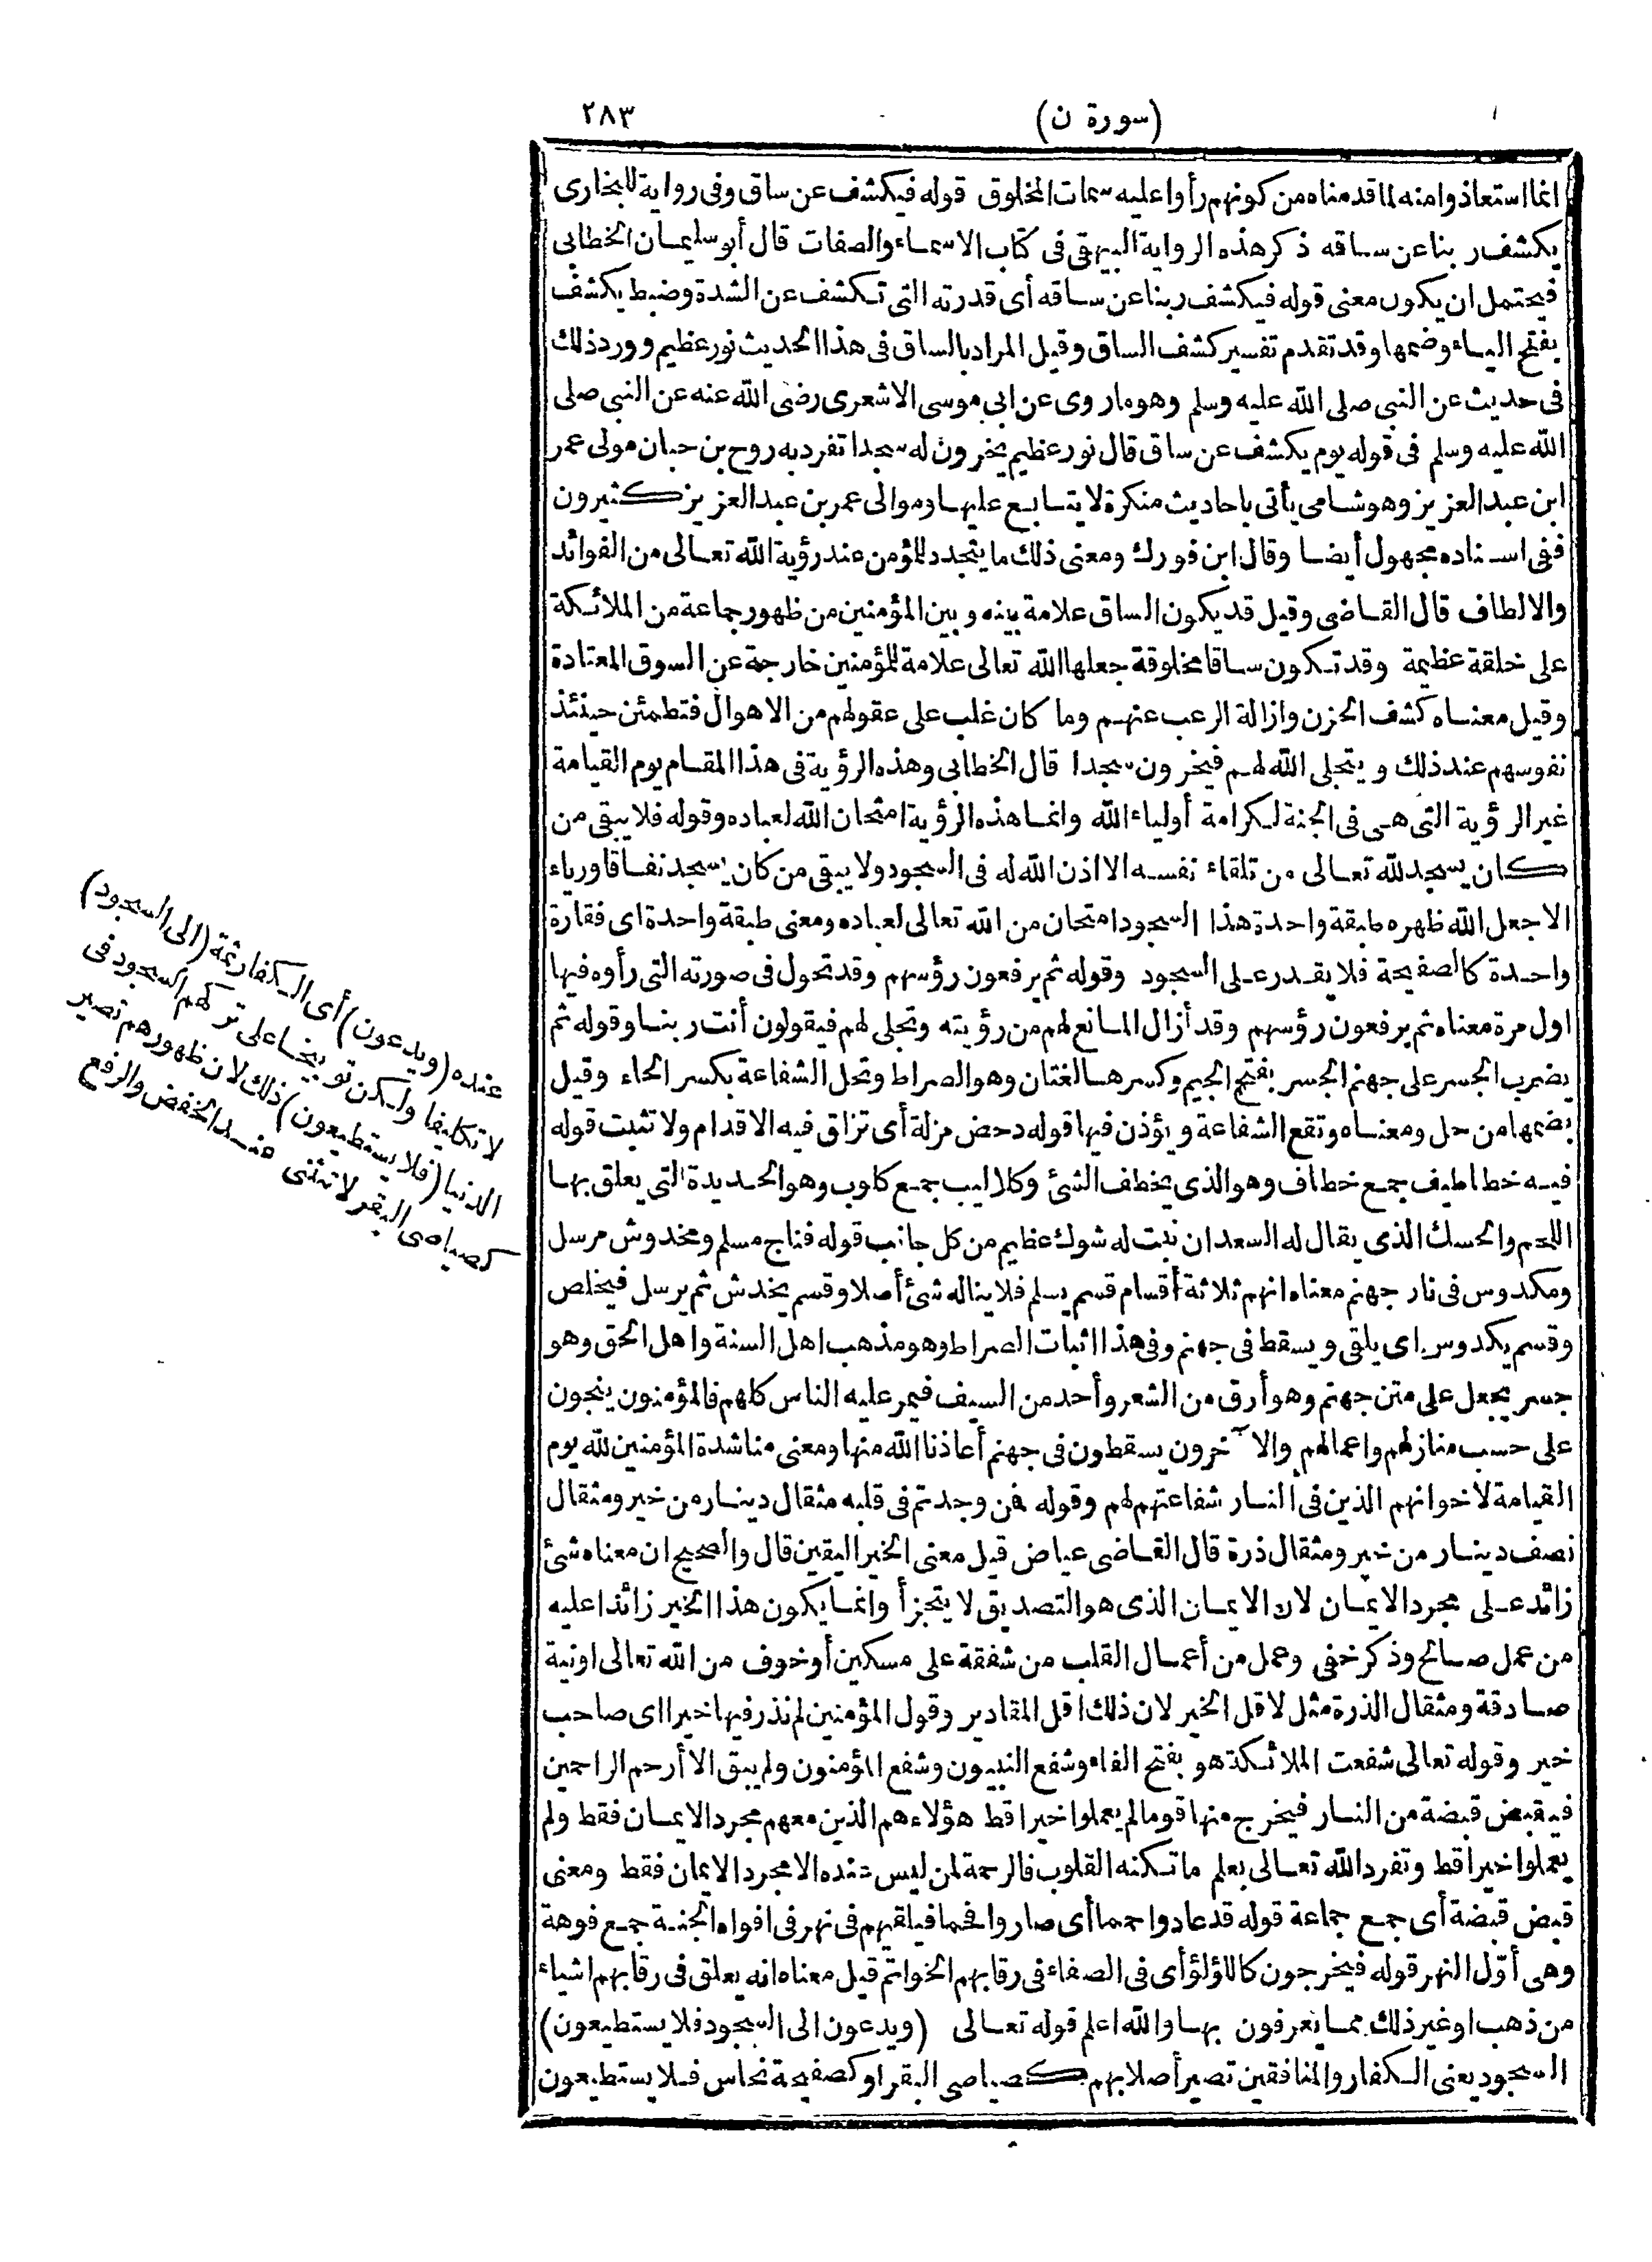 (سورة ن) ٢٨٣
انما استعاذوا منه لما قدمناه من كونهم رأوا عليه سمات المخلوق قوله فيكشف عن ساق وفى رواية للبخارى
يكشف ربنا عن ساقه ذكر هذه الرواية البيهقى فى كتاب الاسماء والصفات قال أبو سليمان الخطابى
فيحتمل ان يكون معنى قوله فيكشف ربنا عن ساقه أى قدرته التى تكشف عن الشدة وضبط يكشف
بفتح الياء وضمها وقد تقدم تفسير كشف الساق وقيل المراد بالساق فى هذا الحديث نور عظيم وورد ذلك
فى حديث عن النبى صلى الله عليه وسلم وهو ماروى عن ابى موسى الاشعرى رضى الله عنه عن النبى صلى
الله عليه وسلم فى قوله يوم يكشف عن ساق قال نور عظيم يخرون له سجدا تفرد به روح بن حبان مولى عمر
ابن عبد العزيز وهو شامى يأتى باحاديث منكرة لا يتابع عليها وموالى عمر بن عبد العزيز كثيرون
ففى اسناده مجهول أيضا وقال ابن فورك ومعنى ذلك ما يتجدد للمؤمن عند رؤية الله تعالى من الفوائد
والالطاف قال القاضى وقيل قد يكون الساق علامة بينه وبين المؤمنين من ظهور جماعة من الملائكة
على خلقة عظيمة وقد تكون ساقا مخلوقة جعلها الله تعالى علامة للمؤمنين خارجة عن السوق المعتادة
وقيل معناه كشف الحزن وازالة الرعب عنهم وما كان غلب على عقولهم من الاهوال فتطمئن حينئذ
نفوسهم عند ذلك ويتجلى الله لهم فيخرون سجدا قال الخطابى وهذه الرؤية فى هذا المقام يوم القيامة
غير الرؤية التى هى فى الجنة لكرامة أولياء الله وانما هذه الرؤية امتحان الله لعباده وقوله فلا يبقى من
كان يسجد لله تعالى من تلقاء نفسه الا اذن الله له فى السجود ولا يبقى من كان يسجد نفاقا ورياء
الا جعل الله ظهره طبقة واحدة هذا السجود امتحان من الله تعالى لعباده ومعنى طبقة واحدة اى فقارة
واحدة كالصفيحة فلا يقدر على السجود وقوله ثم يرفعون رؤسهم وقد تحول فى صورته التى رأوه فيها
اول مرة معناه ثم يرفعون رؤسهم وقد أزال المانع لهم من رؤيته وتجلى لهم فيقولون أنت ربنا وقوله ثم
يضرب الجسر على جهنم الجسر بفتح الجيم وكسرها لغتان وهو الصراط وتحل الشفاعة بكسر الحاء وقيل
بضمها من حل ومعناه وتقع الشفاعة ويؤذن فيها قوله دحض مزلة أى تزلق فيه الاقدام ولا تثبت قوله
فيه خطاطيف جمع خطاف وهو الذى يخطف الشئ وكلاليب جمع كلوب وهو الحديدة التى يعلق بها
اللحم والحسك الذى يقال له السعدان نبت له شوك عظيم من كل جانب قوله فناج مسلم ومخدوش مرسل
ومكدوس فى نار جهنم معناه انهم ثلاثة أقسام قسم يسلم فلا يناله شئ أصلا وقسم يخدش ثم يرسل فيخلص
وقسم يكدوس اى يلقى ويسقط فى جهنم وفى هذا اثبات الصراط وهو مذهب اهل السنة واهل الحق وهو
جسر يجعل على متن جهنم وهو أرق من الشعر وأحد من السيف فيمر عليه الناس كلهم فالمؤمنون ينجون
على حسب منازلهم واعمالهم والآخرون يسقطون فى جهنم أعاذنا الله منها ومعنى مناشدة المؤمنين لله يوم
القيامة لاخوانهم الذين فى النار شفاعتهم لهم وقوله فمن وجدتم فى قلبه مثقال دينار من خير ومثقال
نصف دينار من خير ومثقال ذرة قال القاضى عياض قيل معنى الخير اليقين قال والصحيح ان معناه شئ
زائد على مجرد الايمان لان الايمان الذى هو التصديق لا يتجزأ وانما يكون هذا الخير زائدا عليه
من عمل صالح وذكر خفى وعمل من أعمال القلب من شفقة على مسكين أو خوف من الله تعالى اونية
صادقة ومثقال الذرة مثل لاقل الخير لان ذلك اقل المقادير وقول المؤمنين لم نذر فيها خيرا اى صاحب
خير وقوله تعالى شفعت الملائكة هو بفتح الفاء وشفع النبيون وشفع المؤمنون ولم يبق الا أرحم الراحمين
فيقبض قبضة من النار فيخرج منها قوما لم يعملوا خيرا قط هؤلاء هم الذين معهم مجرد الايمان فقط ولم
يعملوا خيرا قط وتفرد الله تعالى بعلم ما تكنه القلوب فالرحمة لمن ليس عنده الا مجرد الايمان فقط ومعنى
قبض قبضة أى جمع جماعة قوله قد عادوا حمما أى صاروا فحما فيلقيهم فى نهر فى افواه الجنة جمع فوهة
وهى أوّل النهر قوله فيخرجون كاللؤلؤ أى فى الصفاء فى رقابهم الخواتم قيل معناه انه يعلق فى رقابهم اشياء
من ذهب او غير ذلك مما يعرفون بها والله اعلم قوله تعالى (ويدعون الى السجود فلا يستطيعون)
السجود يعنى الكفار والمنافقين تصير أصلابهم كصياصى البقر او كصفيحة نحاس فلا يستطيعون
عنده (ويدعون) أى الكفار ثمة (الى السجود)
لا تكليفا ولكن توبيخا على تركهم السجود فى
الدنيا (فلا يستطيعون) ذلك لان ظهورهم تصير
كصياصى البقر لا تنثنى عند الخفض والرفع